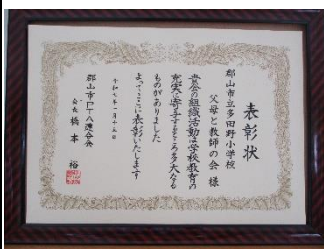 表彰状
郡山市立多田野小学校
父母と教師の会 様
貴会の組織活動は学校教育の
充実に寄与するところ多大なる
ものがありました
よってここに表彰いたします
令和七年一月十五日
郡山市PTA連合会
会長 橋本 裕